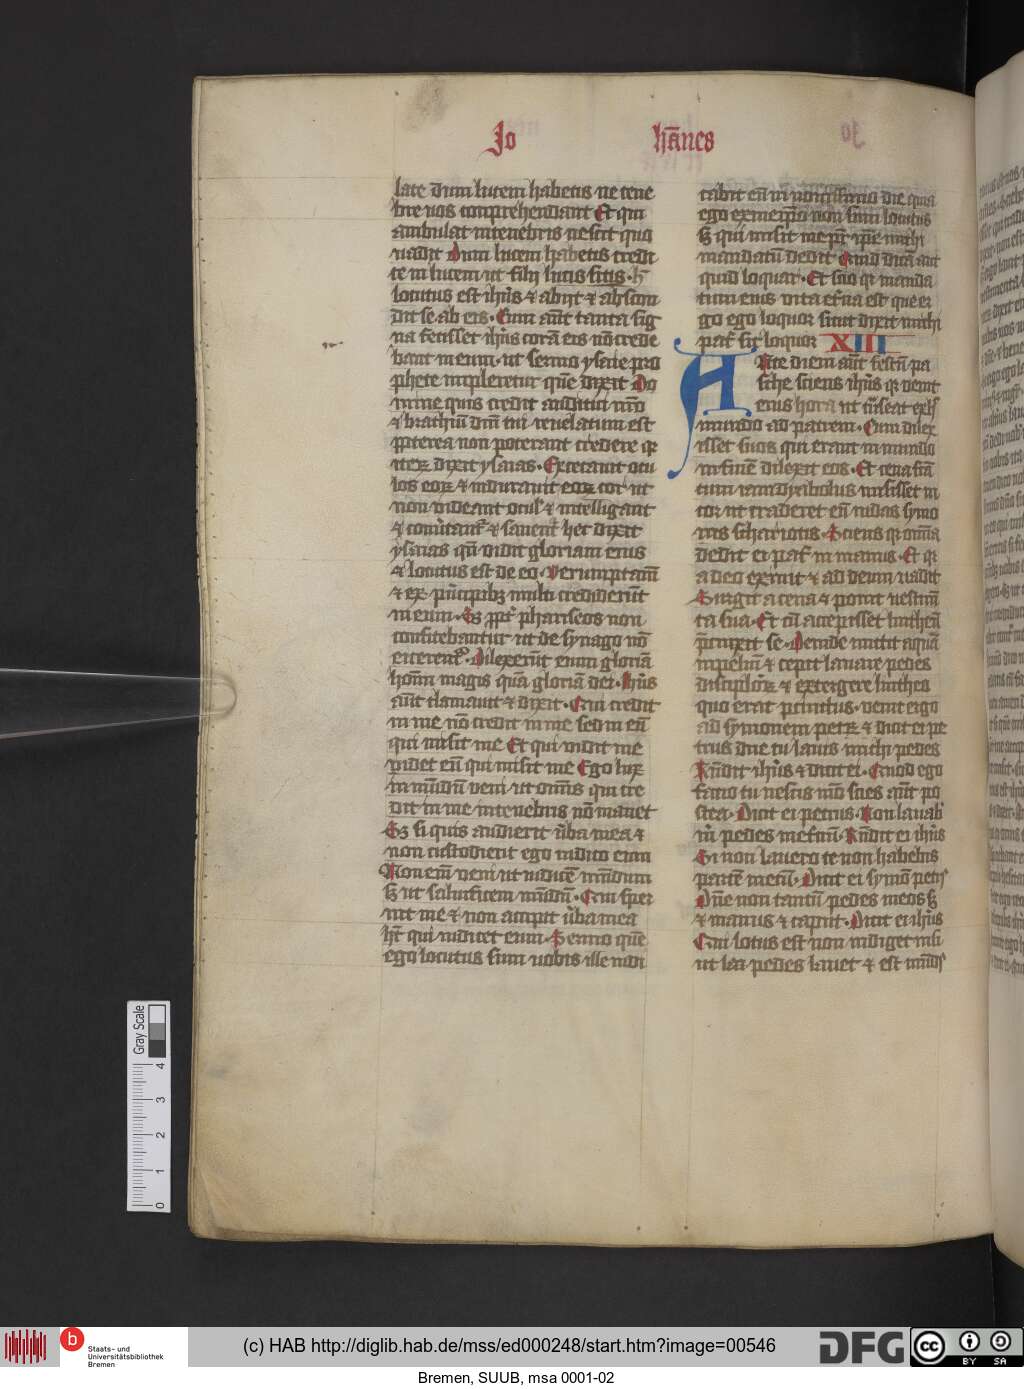 Jo hānes
late dum lucem habetis ne tene
bre uos comprehendant Et qui
ambulat in tenebris nescit quo
uadit Dum lucem habetis credi
te in lucem ut filij lucis sitis · h̄
locutus est ihūs & abijt & abscon
dit se ab eis · Cum aūt tanta sig
na fecisset ihūs corā eis nō crede
bant in eum · ut sermo ysaie pro
phete impleretur quē dixit Do
mine quis credit auditui nr̄o
& brachiū dn̄i cui reuelatum est
ꝓpterea non poterant credere qꝛ
iteꝝ dixit ysaias · Excecauit ocu
los eoꝝ & indurauit eoꝝ cor ut
non uideant oculꝭ & intelligant
& cōūtant᷑ & sanem̄ hec dixit
ysaias qn̄ uidit gloriam eius
& locutus est de eo · Verumptam̄
& ex pⁱncipibꝫ multi crediderūt
in eum · Sꝫ ꝓpt̄ phariseos non
confitebantur ut de synago nō
eicerent᷑ · Dilexerūt enim gloriā
hoīm magis quā gloriā dei · Ihūs
aūt clamauit & dixit · Qui credit
in me nō credit in me sed in eū
qui misit me Et qui uidit me
uidet eū qui misit me Ego lux
in mūdū veni ut omīs qui cre
dit in me in tenebris nō manet
Et si quis audierit ūba mea &
non custodierit ego iudico eum
Non em̄ veni ut iudicē mūdum
sꝫ ut saluificem mūdū · Qui sper
nit me & non accipit ūba mea
hꝫ qui iudicet eum · Sermo quē
ego locutus sum uobis ille iudi
cabit eū in nouissimo die quia
ego ex meip̄o non sum locutus
sꝫ qui misit me pr̄ ip̄e michi
mandatū dedit Quid dicā aut
quid loquar · Et scio qꝛ manda
tum eius vita et̄na est que er
go ego loquor sicut dixit michi
pat̄ sic loquor XIII
Ante diem aūt festū pa
sche sciens ihūs qꝛ venit
eius hora ut tn̄seat ex hͦ
mundo ad patrem · Cum dilex
isset suos qui erant in mundo
in finē dilexit eos · Et cena fcā
cum iam dyabolus misisset in
cor ut traderet eū iudas symo
nis schariotis · Sciens qꝛ om̄ia
dedit ei pat̄ in manus · Et qꝛ
a deo exiuit & ad deum uadit
Surgit a cena & ponit uestim̄
ta sua · Et cū accepisset lintheū
p̄cinxit se · Deinde mittit aquā
in peluī & cepit lauare pedes
discipuloꝝ & extergere lintheo
quo erat precinctus · venit ergo
ad symonem petꝝ & dicit ei pe
trus dn̄e tu lauas michi pedes
Rn̄dit ihūs & dicit ei · Quod ego
facio tu nescis mō scies aūt po
stea · Dicit ei petrus · Non lauabꝭ
m̄ pedes inet̄nū · Rn̄dit ei ihūs
Si non lauero te non habebis
partē mecū · Dicit ei symō petrꝰ
Dn̄e non tantū pedes meos sꝫ
& manus & caput · Dicit ei ihūs
Qui lotus est non indiget nisi
ut pedes lauet & est mūdꝰ
Gray Scale
0 1 2 3 4
Staats- und
Universitätsbibliothek
Bremen
(c) HAB http://diglib.hab.de/mss/ed000248/start.htm?image=00546
DFG
cc BY SA
Bremen, SUUB, msa 0001-02